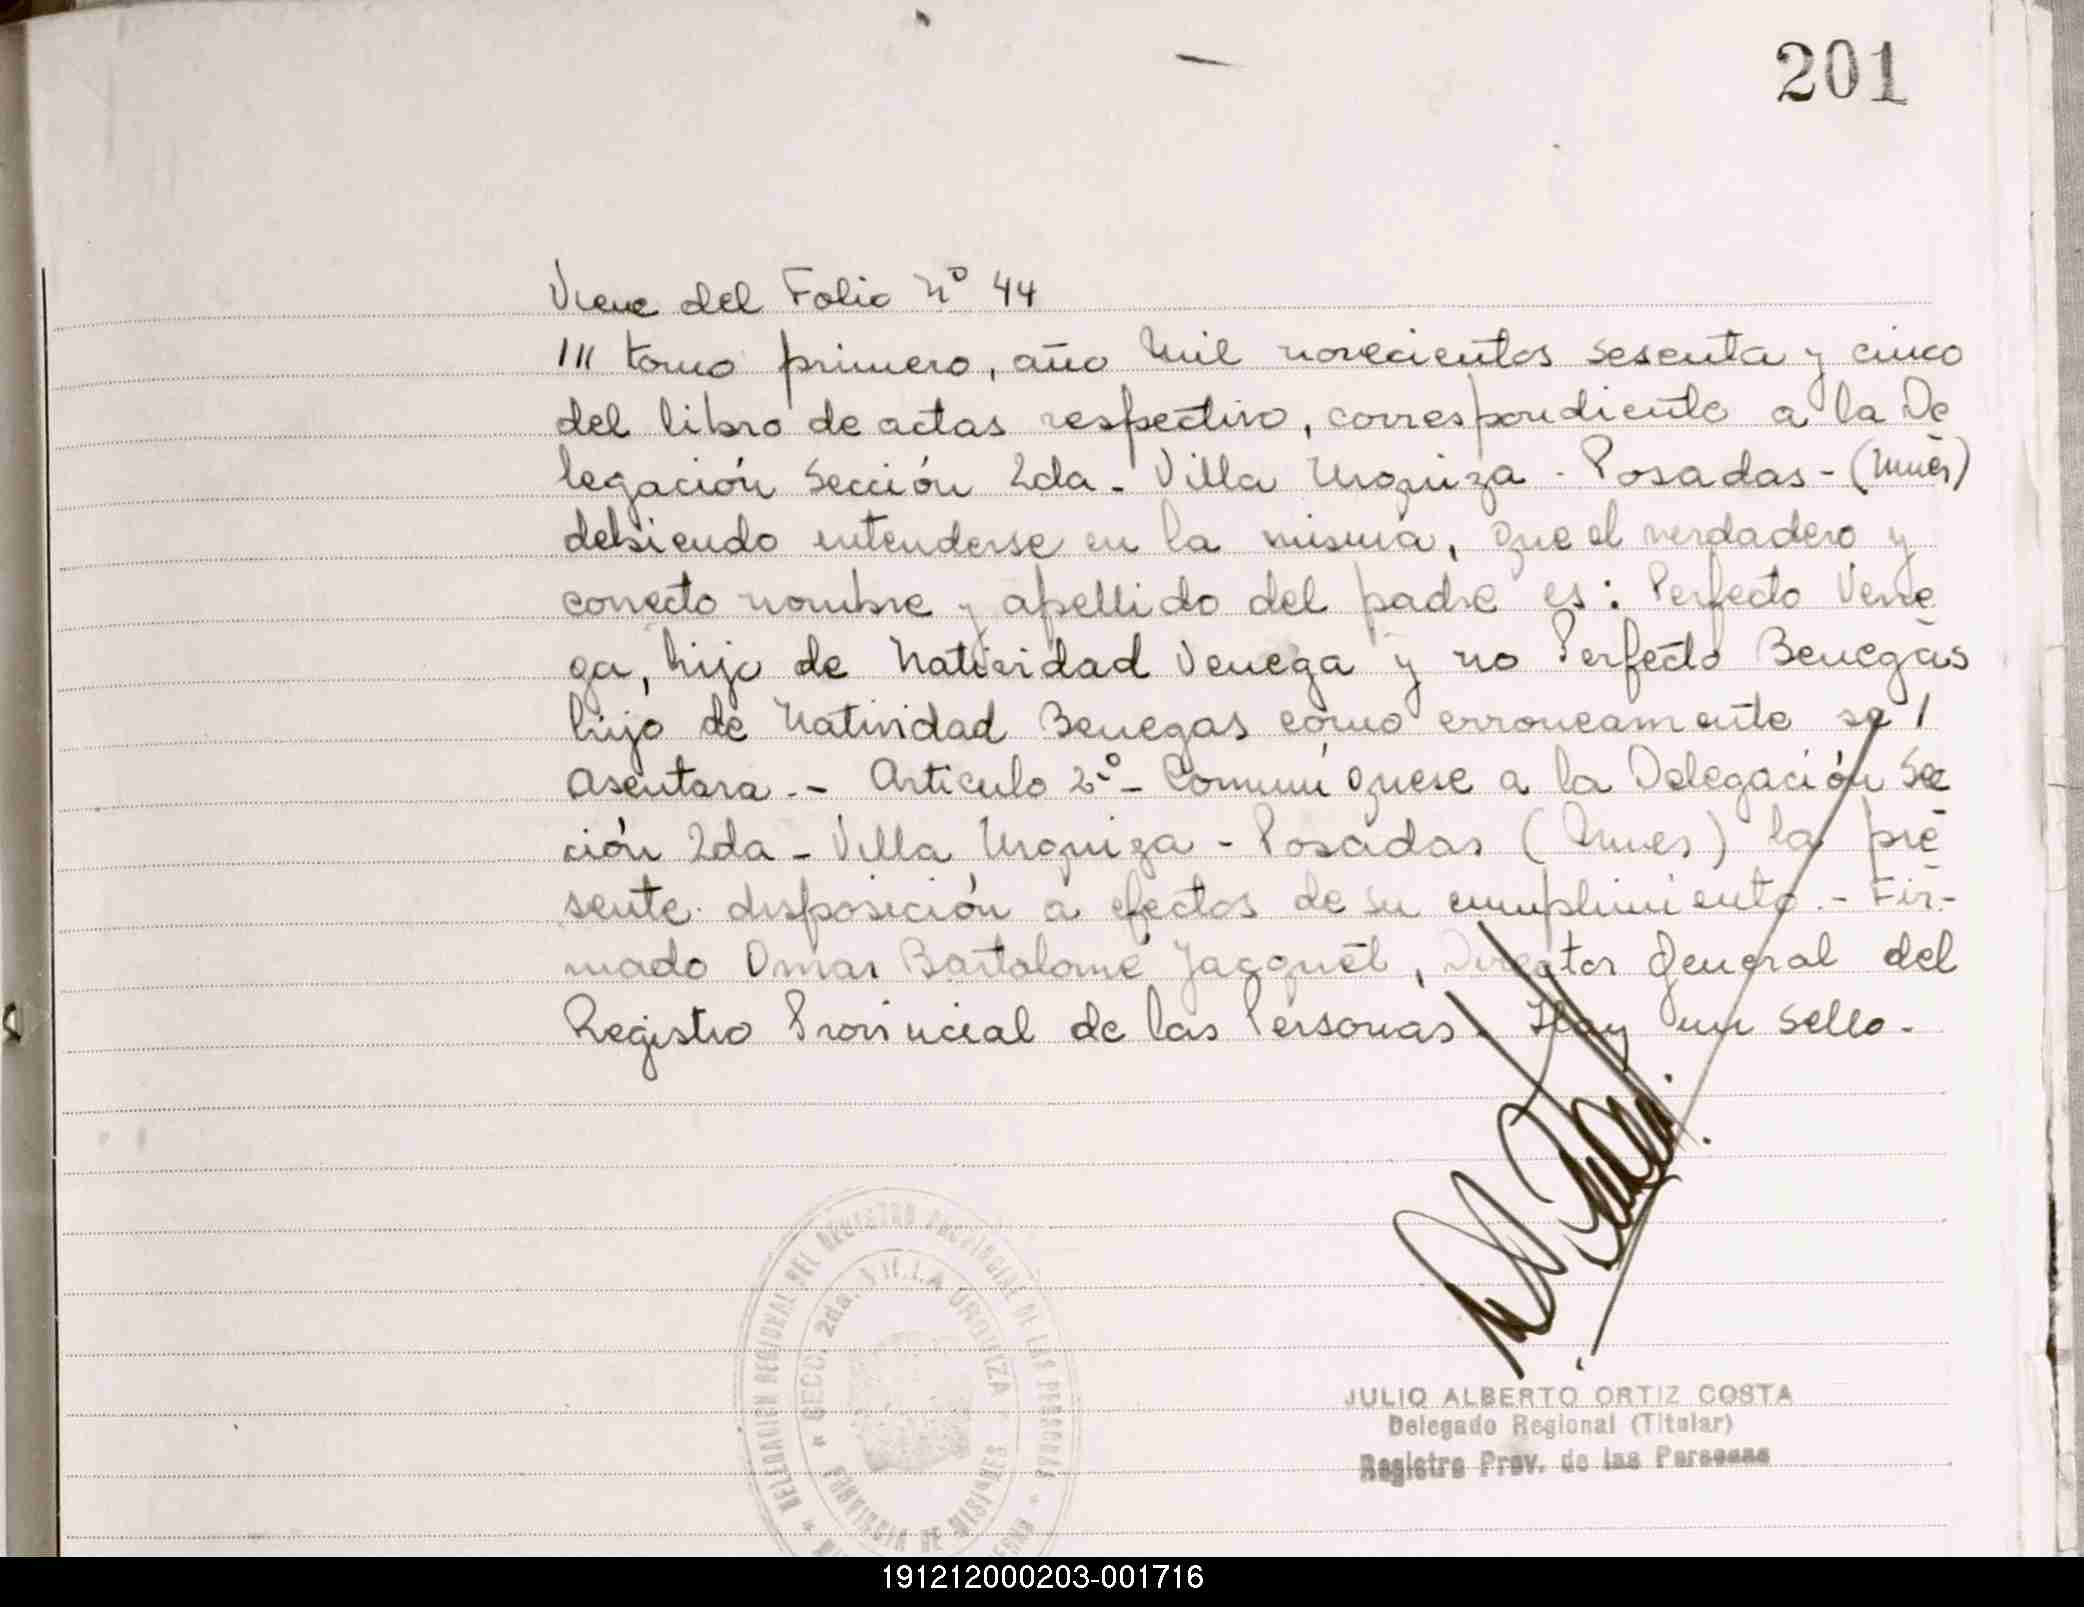 201
Viene del Folio Nº 44
/// tomo primero, año mil novecientos sesenta y cinco
del libro de actas respectivo, correspondiente a la De
legación Sección 2da - Villa Urquiza - Posadas - (Mnes)
debiendo entenderse en la misma, que el verdadero y
correcto nombre y apellido del padre es: Perfecto Vene
ga, hijo de Natividad Venega y no Perfecto Benegas
hijo de Natividad Benegas como erroneamente se /
asentara.- Articulo 2º- Comuníquese a la Delegación Sec
ción 2da - Villa Urquiza - Posadas (Mnes) la pre
sente disposición a efectos de su cumplimiento.- Fir-
mado Omar Bartolomé Jacquét, Director General del
Registro Provincial de las Personas. Hay un sello.
DELEGACION REGIONAL DEL REGISTRO PROVINCIAL DE LAS PERSONAS
SECC. 2da. VILLA URQUIZA
PROVINCIA DE MISIONES
JULIO ALBERTO ORTIZ COSTA
Delegado Regional (Titular)
Registro Prov. de las Personas
191212000203-001716